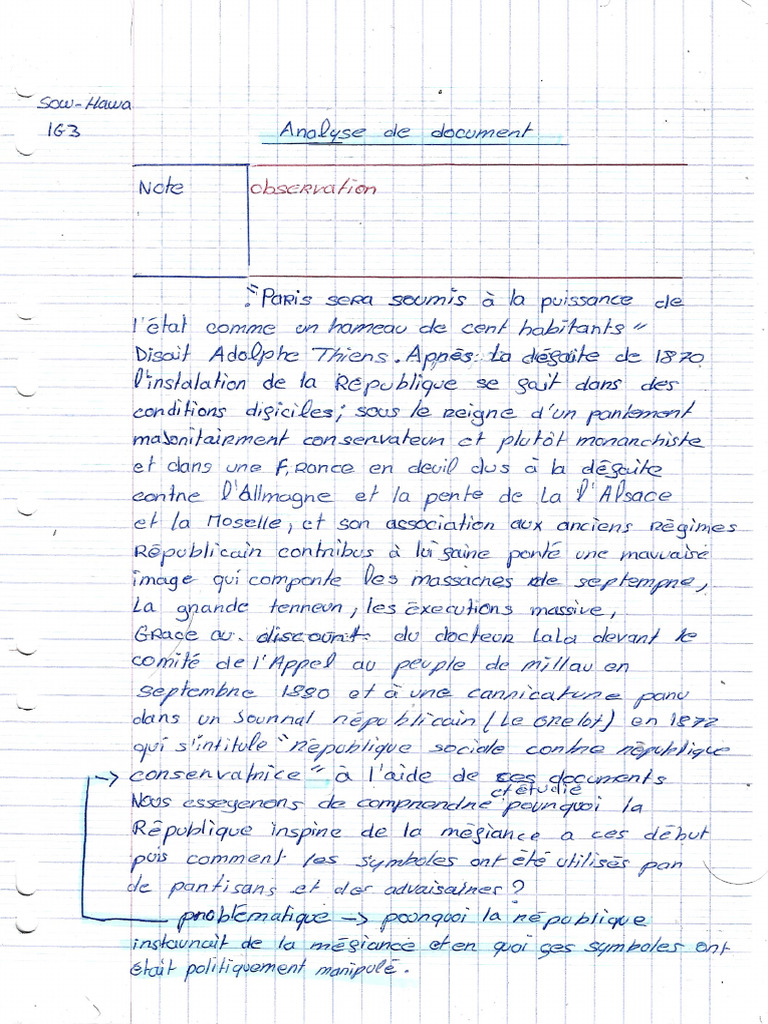 Sow-Hawa
1G3
Analyse de document
Note
observation
"Paris sera soumis à la puissance de
l'état comme un hameau de cent habitants"
Disait Adolphe Thiers. Après La défaite de 1870
l'instalation de la République se fait dans des
conditions dificiles; sous le reigne d'un parlement
majoritairment conservateur et plutôt monarchiste
et dans une France en deuil dus à la défaite
contre l'Allmagne et la perte de La l'Alsace
et la Moselle, et son association aux anciens Régimes
Républicain contribus à lui faire porté une mauvaise
image qui comporte les massacres de septempre,
La grande terreur, les éxecutions massive,
Grace au discourt du docteur Lala devant le
comité de l'Appel au peuple de millau en
septembre 1880 et à une carricature paru
dans un Journal républicain (Le Grelot) en 1872
qui s'intitule "république sociale contre république
conservatrice" à l'aide de ces documents
et étudié
Nous esseyerons de comprendre pourquoi la
République inspire de la méfiance a ces début
puis comment les symboles ont été utilisés par
de partisans et des advaisaires?
problématique → pourquoi la république
instaurait de la méfiance et en quoi ses symboles ont
était politiquement manipulé.